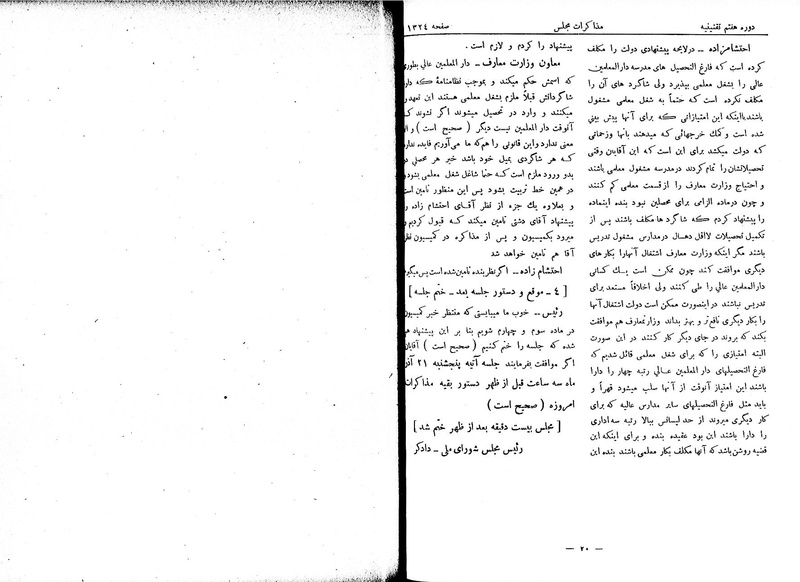 دوره هفتم تقنینیه
مذاکرات مجلس
صفحه ۱۳۲۴
احتشام زاده ــ در لایحه پیشنهادی دولت را مکلف
کرده است که فارغ التحصیل های مدرسه دارالمعلمین
عالی را بشغل معلمی بپذیرد ولی شاگرد های آن را
مکلف نکرده است که حتماً به شغل معلمی مشغول
باشند با اینکه این امتیازاتی که برای آنها پیش بینی
شده است و کمک خرجهائی که میدهند بآنها و زحماتی
که دولت میکشد برای این است که این آقایان وقتی
تحصیلاتشان را تمام کردند در مدرسه مشغول معلمی باشند
و احتیاج وزارت معارف را از قسمت معلمی کم کنند
و چون در ماده الزامی برای محصلین نبود بنده اینماده
را پیشنهاد کردم که شاگرد ها مکلف باشند پس از
تکمیل تحصیلات لااقل دهسال در مدارس مشغول تدریس
باشند مگر اینکه وزارت معارف اشتغال آنها را بکار های
دیگری موافقت کند چون ممکن است یک کسانی
دارالمعلمین عالی را طی کنند ولی اخلاقاً مستعد برای
تدریس نباشند در اینصورت ممکن است دولت اشتغال آنها
را بکار دیگری نافع تر و بهتر بداند وزارت معارف هم موافقت
بکند که بروند در جای دیگر کار کنند در این صورت
البته امتیازی را که برای شغل معلمی قائل شدیم که
فارغ التحصیلهای دار المعلمین عالی رتبه چهار را دارا
باشند این امتیاز آنوقت از آنها سلب میشود قهراً و
باید مثل فارغ التحصیلهای سایر مدارس عالیه که برای
کار دیگری میروند از حد لیسانس ببالا رتبه سه اداری
را دارا باشند این بود عقیده بنده و برای اینکه این
قضیه روشن باشد که آنها مکلف بکار معلمی باشند بنده این
پیشنهاد را کردم و لازم است .
معاون وزارت معارف ــ دار المعلمین عالی بطوری
که اسمش حکم میکند و بموجب نظامنامهٔ که دارد
شاگردانش قبلاً ملزم بشغل معلمی هستند این تعهد را
میکنند و وارد در تحصیل میشوند اگر نشوند که
آنوقت دار المعلمین نیست دیگر ( صحیح است )
معنی ندارد و این قانونی را هم که ما می‌آوریم فایده ندارد
که هر شاگردی بمیل خود باشد خیر هر محصلی در
بدو ورود ملزم است که حتما شاغل شغل معلمی بشود و
در همین خط تربیت بشود پس این منظور تامین است
و بعلاوه یک جزء از نظر آقای احتشام زاده را
پیشنهاد آقای دشتی تامین میکند که قبول کردیم و
میرود بکمیسیون و پس از مذاکره در کمیسیون نظر
آقا هم تامین خواهد شد
احتشام زاده ــ اگر نظر بنده تامین شده است پس میگیرم
[ ۴ ــ موقع و دستور جلسه بعد ــ ختم جلسه ]
رئیس ــ خوب ما میبایستی که منتظر خبر کمیسیون
در ماده سوم و چهارم شویم بنا بر این پیشنهاد هم
شده که جلسه را ختم کنیم ( صحیح است ) آقایان
اگر موافقت بفرمایند جلسه آتیه پنجشنبه ۲۱ آذر
ماه سه ساعت قبل از ظهر دستور بقیه مذاکرات
امروزه ( صحیح است )
[ مجلس بیست دقیقه بعد از ظهر ختم شد ]
رئیس مجلس شورای ملی ــ دادگر
ــ ۲۰ ــ